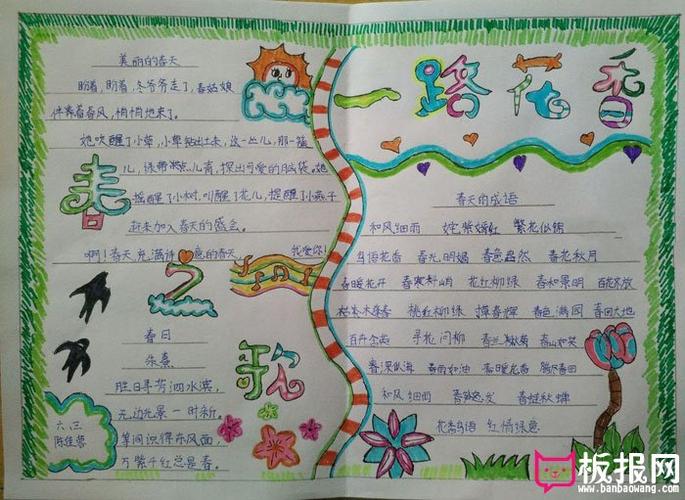 一路花香
美丽的春天
盼着，盼着，冬爷爷走了，春姑娘
伴着春风，悄悄地来了。
她唤醒了小草，小草钻出土来，这一丛儿，那一簇
儿，绿带点儿青，探出可爱的脑袋。她
摇醒了小树，叫醒了花儿，提醒了小燕子
赶来加入春天的盛会。
啊！春天，充满诗意的春天，我爱你！
春
之
歌
春日
朱熹
胜日寻芳泗水滨，
无边光景一时新。
等闲识得东风面，
万紫千红总是春。
六、三
春天的成语
和风细雨 姹紫嫣红 繁花似锦
鸟语花香 春光明媚 春色盎然 春花秋月
春暖花开 春寒料峭 花红柳绿 春和景明 百花齐放
枯木逢春 桃红柳绿 春色满园 春回大地
百卉含英 寻花问柳 春兰秋菊 春山如笑
春深似海 春雨如油 春暖花香
和风细雨 春蛙秋蝉
花香鸟语 红情绿意
板报网
www.banbaowang.com